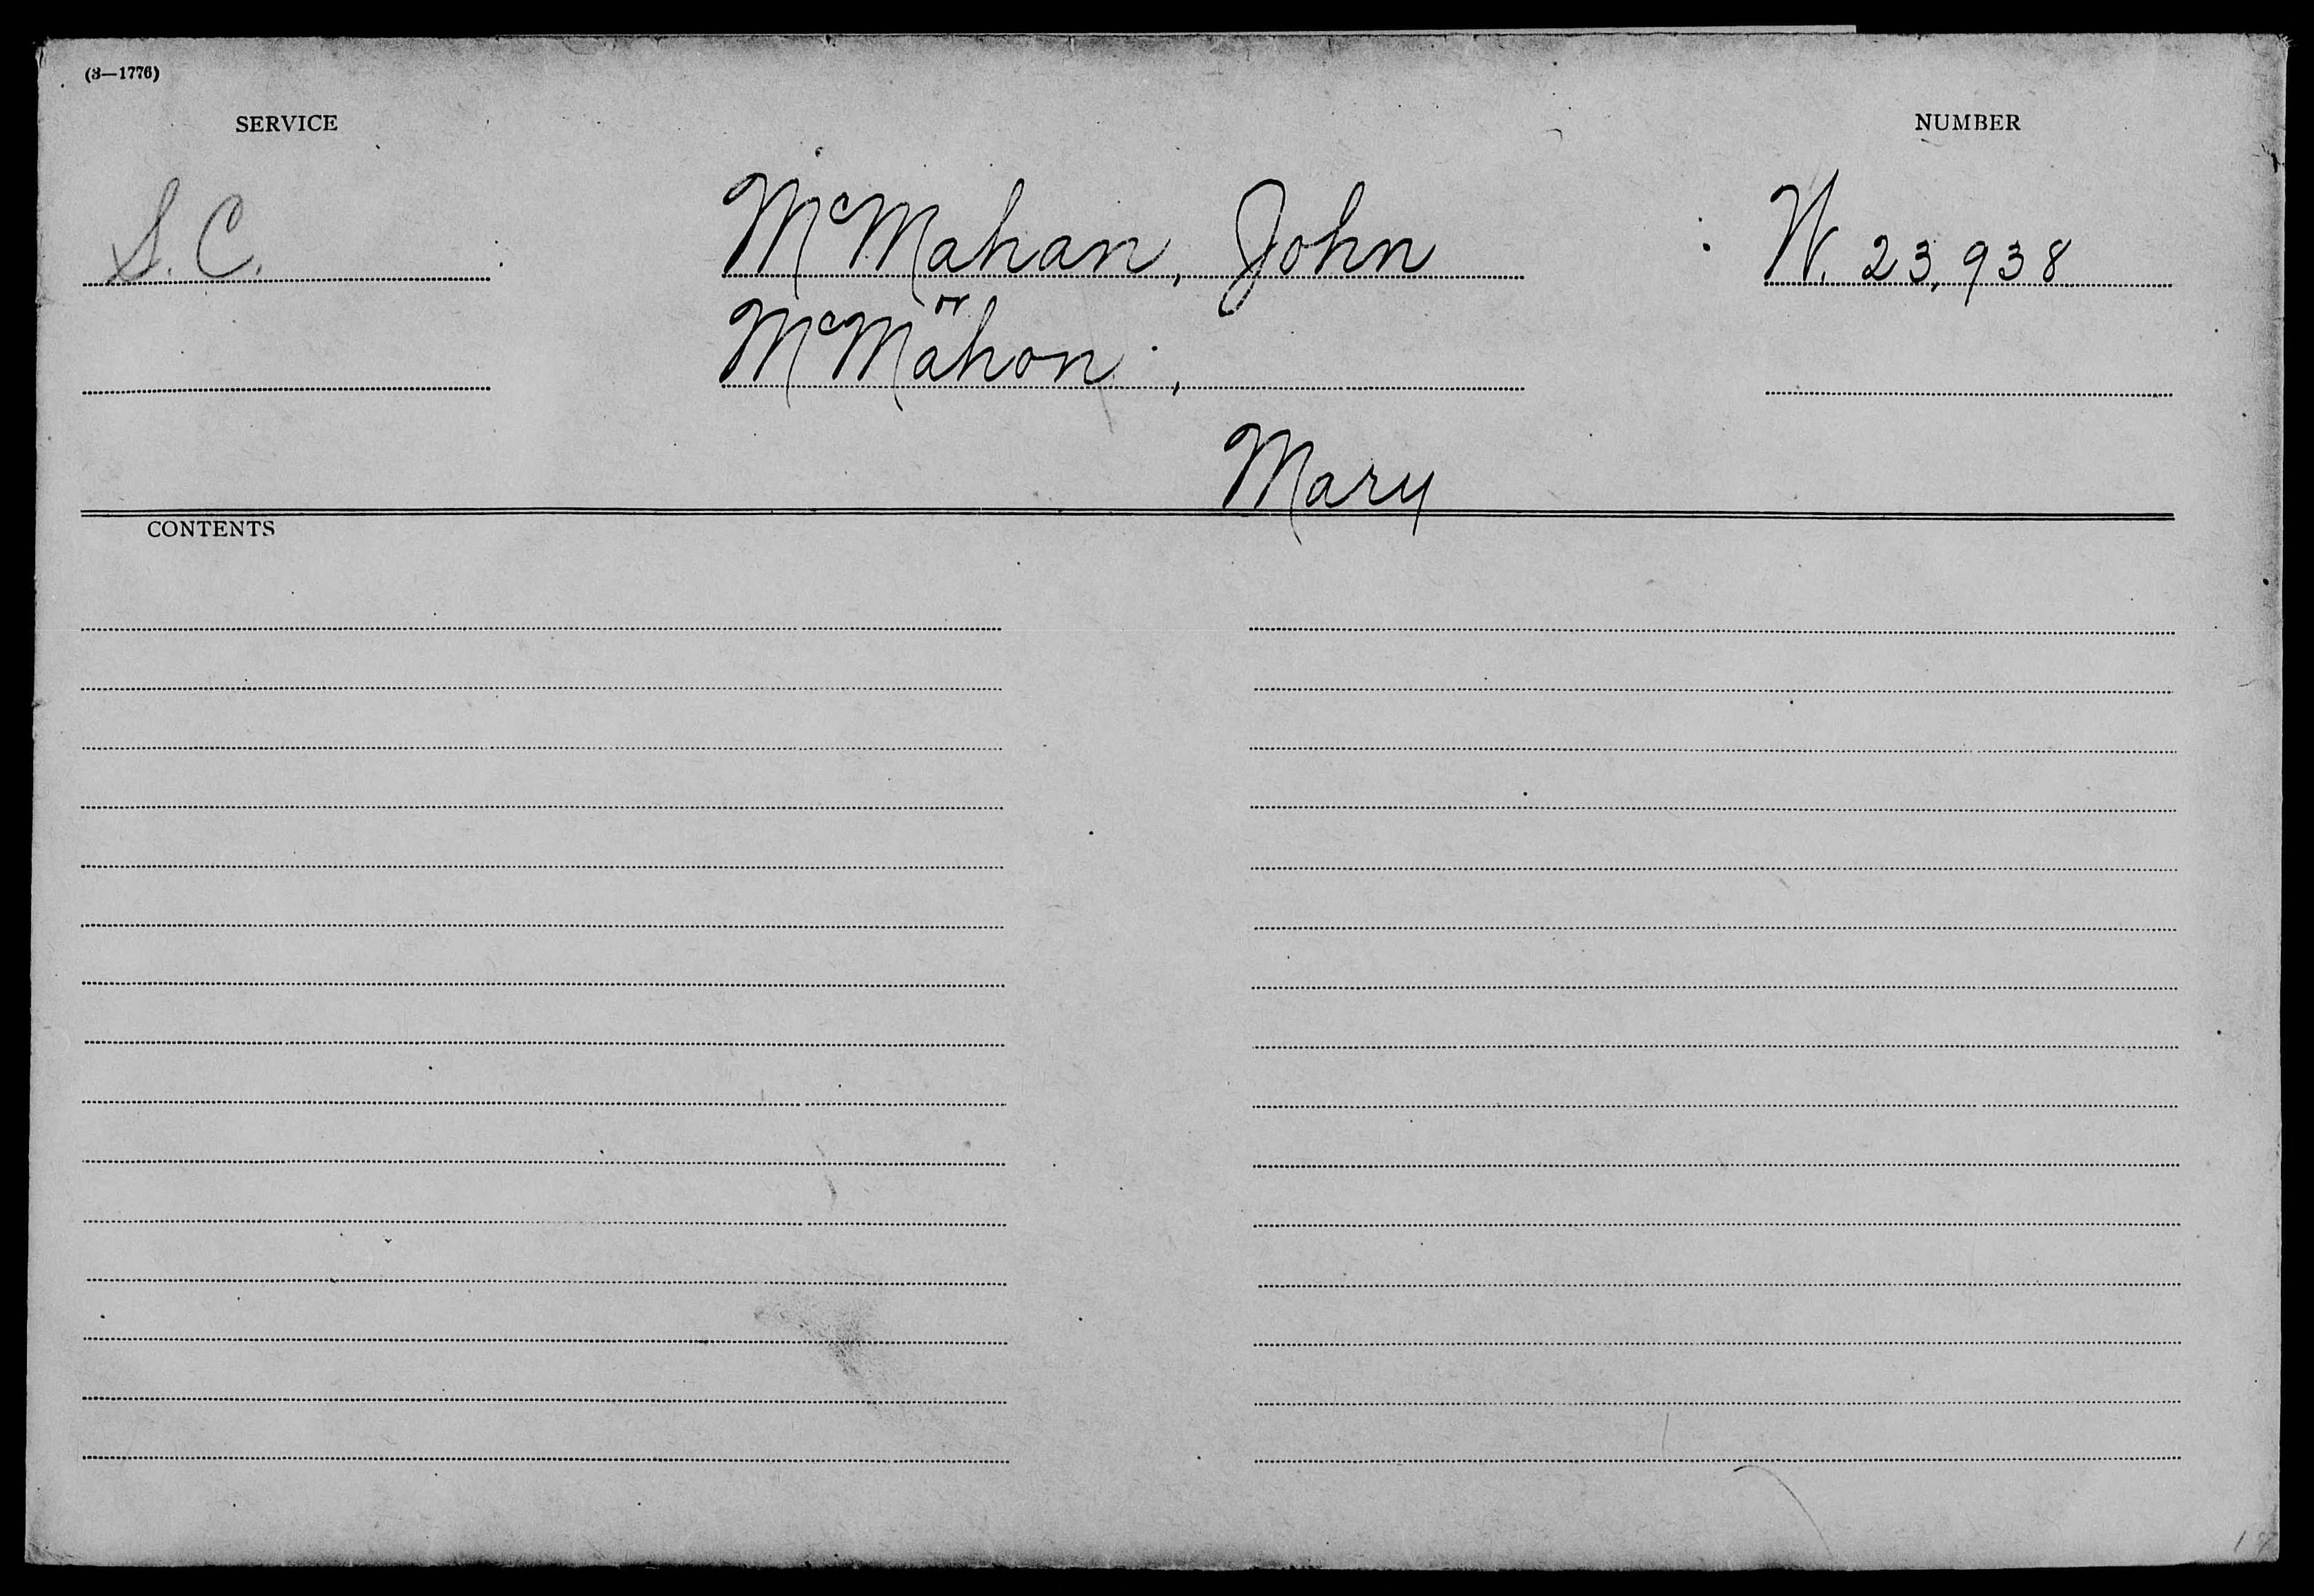 (3—1776)
SERVICE
NUMBER
S. C.
McMahan, John
W. 23,938
or
McMahon,
Mary
CONTENTS